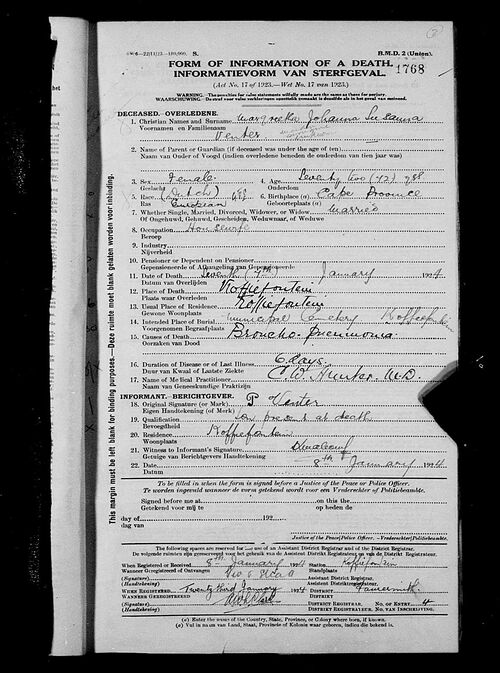 B.M.D. 2 (Union).
FORM OF INFORMATION OF A DEATH.
INFORMATIEVORM VAN STERFGEVAL.
1768
(Act No. 17 of 1923.—Wet No. 17 van 1923.)
WARNING.—The penalties for false statements wilfully made are the same as for perjury.
WAARSCHUWING.—De straf voor valse verklaringen opzettelik gemaakt is dezelfde als in het geval van meineed.
DECEASED.—OVERLEDENE.
1. Christian Names and Surname Margreeta Johanna Susanna
Voornamen en Familienaam Venter
2. Name of Parent or Guardian (if deceased was under the age of ten)
Naam van Ouder of Voogd (indien overledene beneden de ouderdom van tien jaar was)
3. Sex Female 4. Age Seventy two (72)
Geslacht Ouderdom
5. Race (Dutch) 6. Birthplace (a) Cape Province
Ras European Geboorteplaats (a)
7. Whether Single, Married, Divorced, Widower, or Widow Married
Of Ongehuwd, Gehuwd, Gescheiden, Weduwnaar, of Weduwe
8. Occupation Housewife
Beroep
9. Industry
Nijverheid
10. Pensioner or Dependent on Pensioner
Gepensioneerde of Afhangeling van Gepensioneerde
11. Date of Death Seventh 7th January 1924
Datum van Overlijden
12. Place of Death Koffiefontein
Plaats waar Overleden
13. Usual Place of Residence Koffiefontein
Gewone Woonplaats
14. Intended Place of Burial Municipal Cemetery Koffiefontein
Voorgenomen Begraafplaats
15. Causes of Death Broncho-Pneumonia
Oorzaken van Dood
16. Duration of Disease or of Last Illness 6 days
Duur van Kwaal of Laatste Ziekte
17. Name of Medical Practitioner C. W. Hunter. M.D.
Naam van Geneeskundige Praktizijn
INFORMANT.—BERICHTGEVER.
18. Original Signature (or Mark) P Venter
Eigen Handtekening (of Merk)
19. Qualification Son present at death
Bevoegdheid
20. Residence Koffiefontein
Woonplaats
21. Witness to Informant's Signature
Getuige van Berichtgevers Handtekening
22. Date 8th January 1924
Datum
To be filled in when the form is signed before a Justice of the Peace or Police Officer.
Te worden ingevuld wanneer de vorm getekend wordt voor een Vrederechter of Politiebeambte.
Signed before me at on this the
Getekend voor mij te op heden de
day of 192
dag van
Justice of the Peace/Police Officer.—Vrederechter/Politiebeambte.
The following spaces are reserved for use of an Assistant District Registrar and of the District Registrar.
De volgende ruimten zijn gereserveerd voor het gebruik van de Assistent Distriktsregistrateur en van de Distrikts Registrateur.
When Registered or Received 8th January 1924 Station Koffiefontein
Wanneer Geregistreerd of Ontvangen Standplaats
(Signature) Assistant District Registrar.
(Handtekening) Assistent Distrikts Registrateur.
WHEN REGISTERED Twenty third January 1924 DISTRICT Fauresmith
WANNEER GEREGISTREERD DISTRIKT
(Signature) DISTRICT REGISTRAR. No. OF ENTRY 4
(Handtekening) DISTRIKTS REGISTRATEUR. No. VAN INSCHRIJVING.
(a) Enter the name of the Country, State, Province, or Colony where born, if known.
(a) Vul in naam van Land, Staat, Provincie of Kolonie waar geboren, indien die bekend is.
This margin must be left blank for binding purposes.—Deze ruimte moet blank gelaten worden voor inbinding.